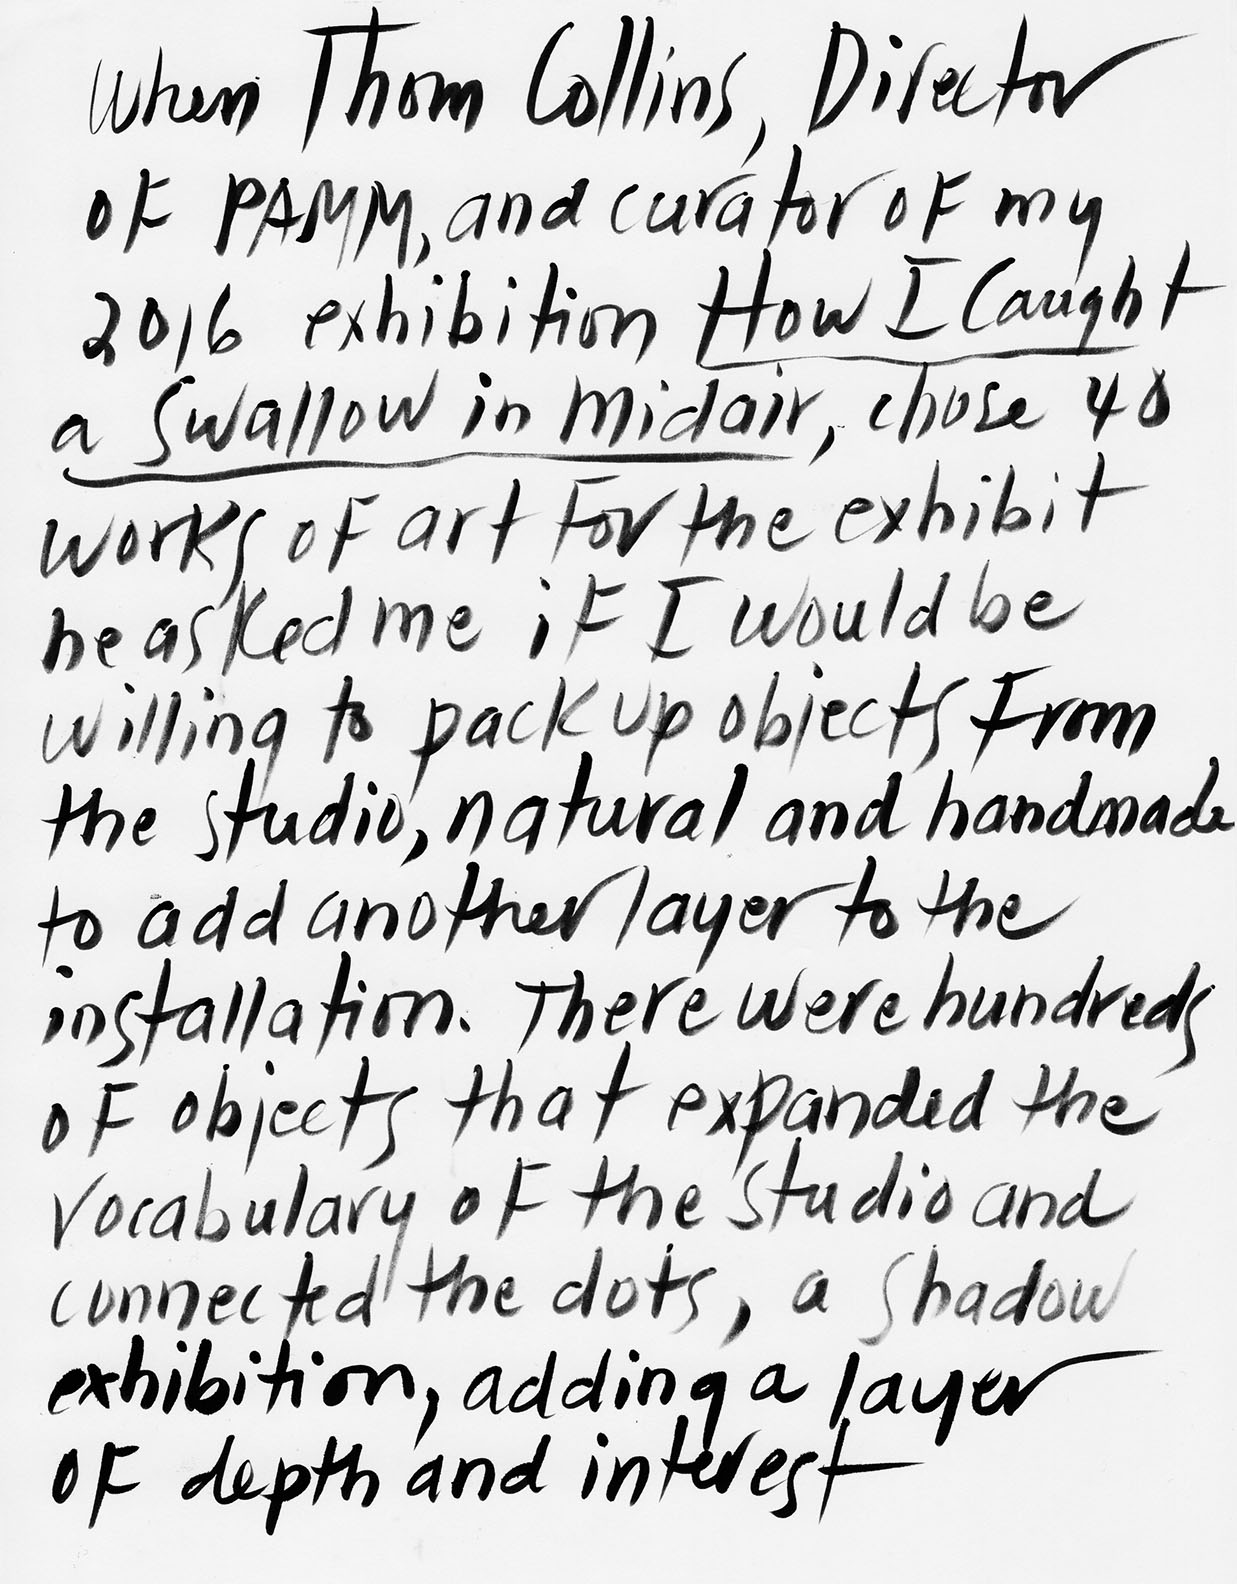 When Thom Collins, Director
of PAMM, and curator of my
2016 exhibition How I Caught
a Swallow in Midair, chose 40
works of art for the exhibit
he asked me if I would be
willing to pack up objects from
the studio, natural and handmade
to add another layer to the
installation. There were hundreds
of objects that expanded the
vocabulary of the studio and
connected the dots, a shadow
exhibition, adding a layer
of depth and interest